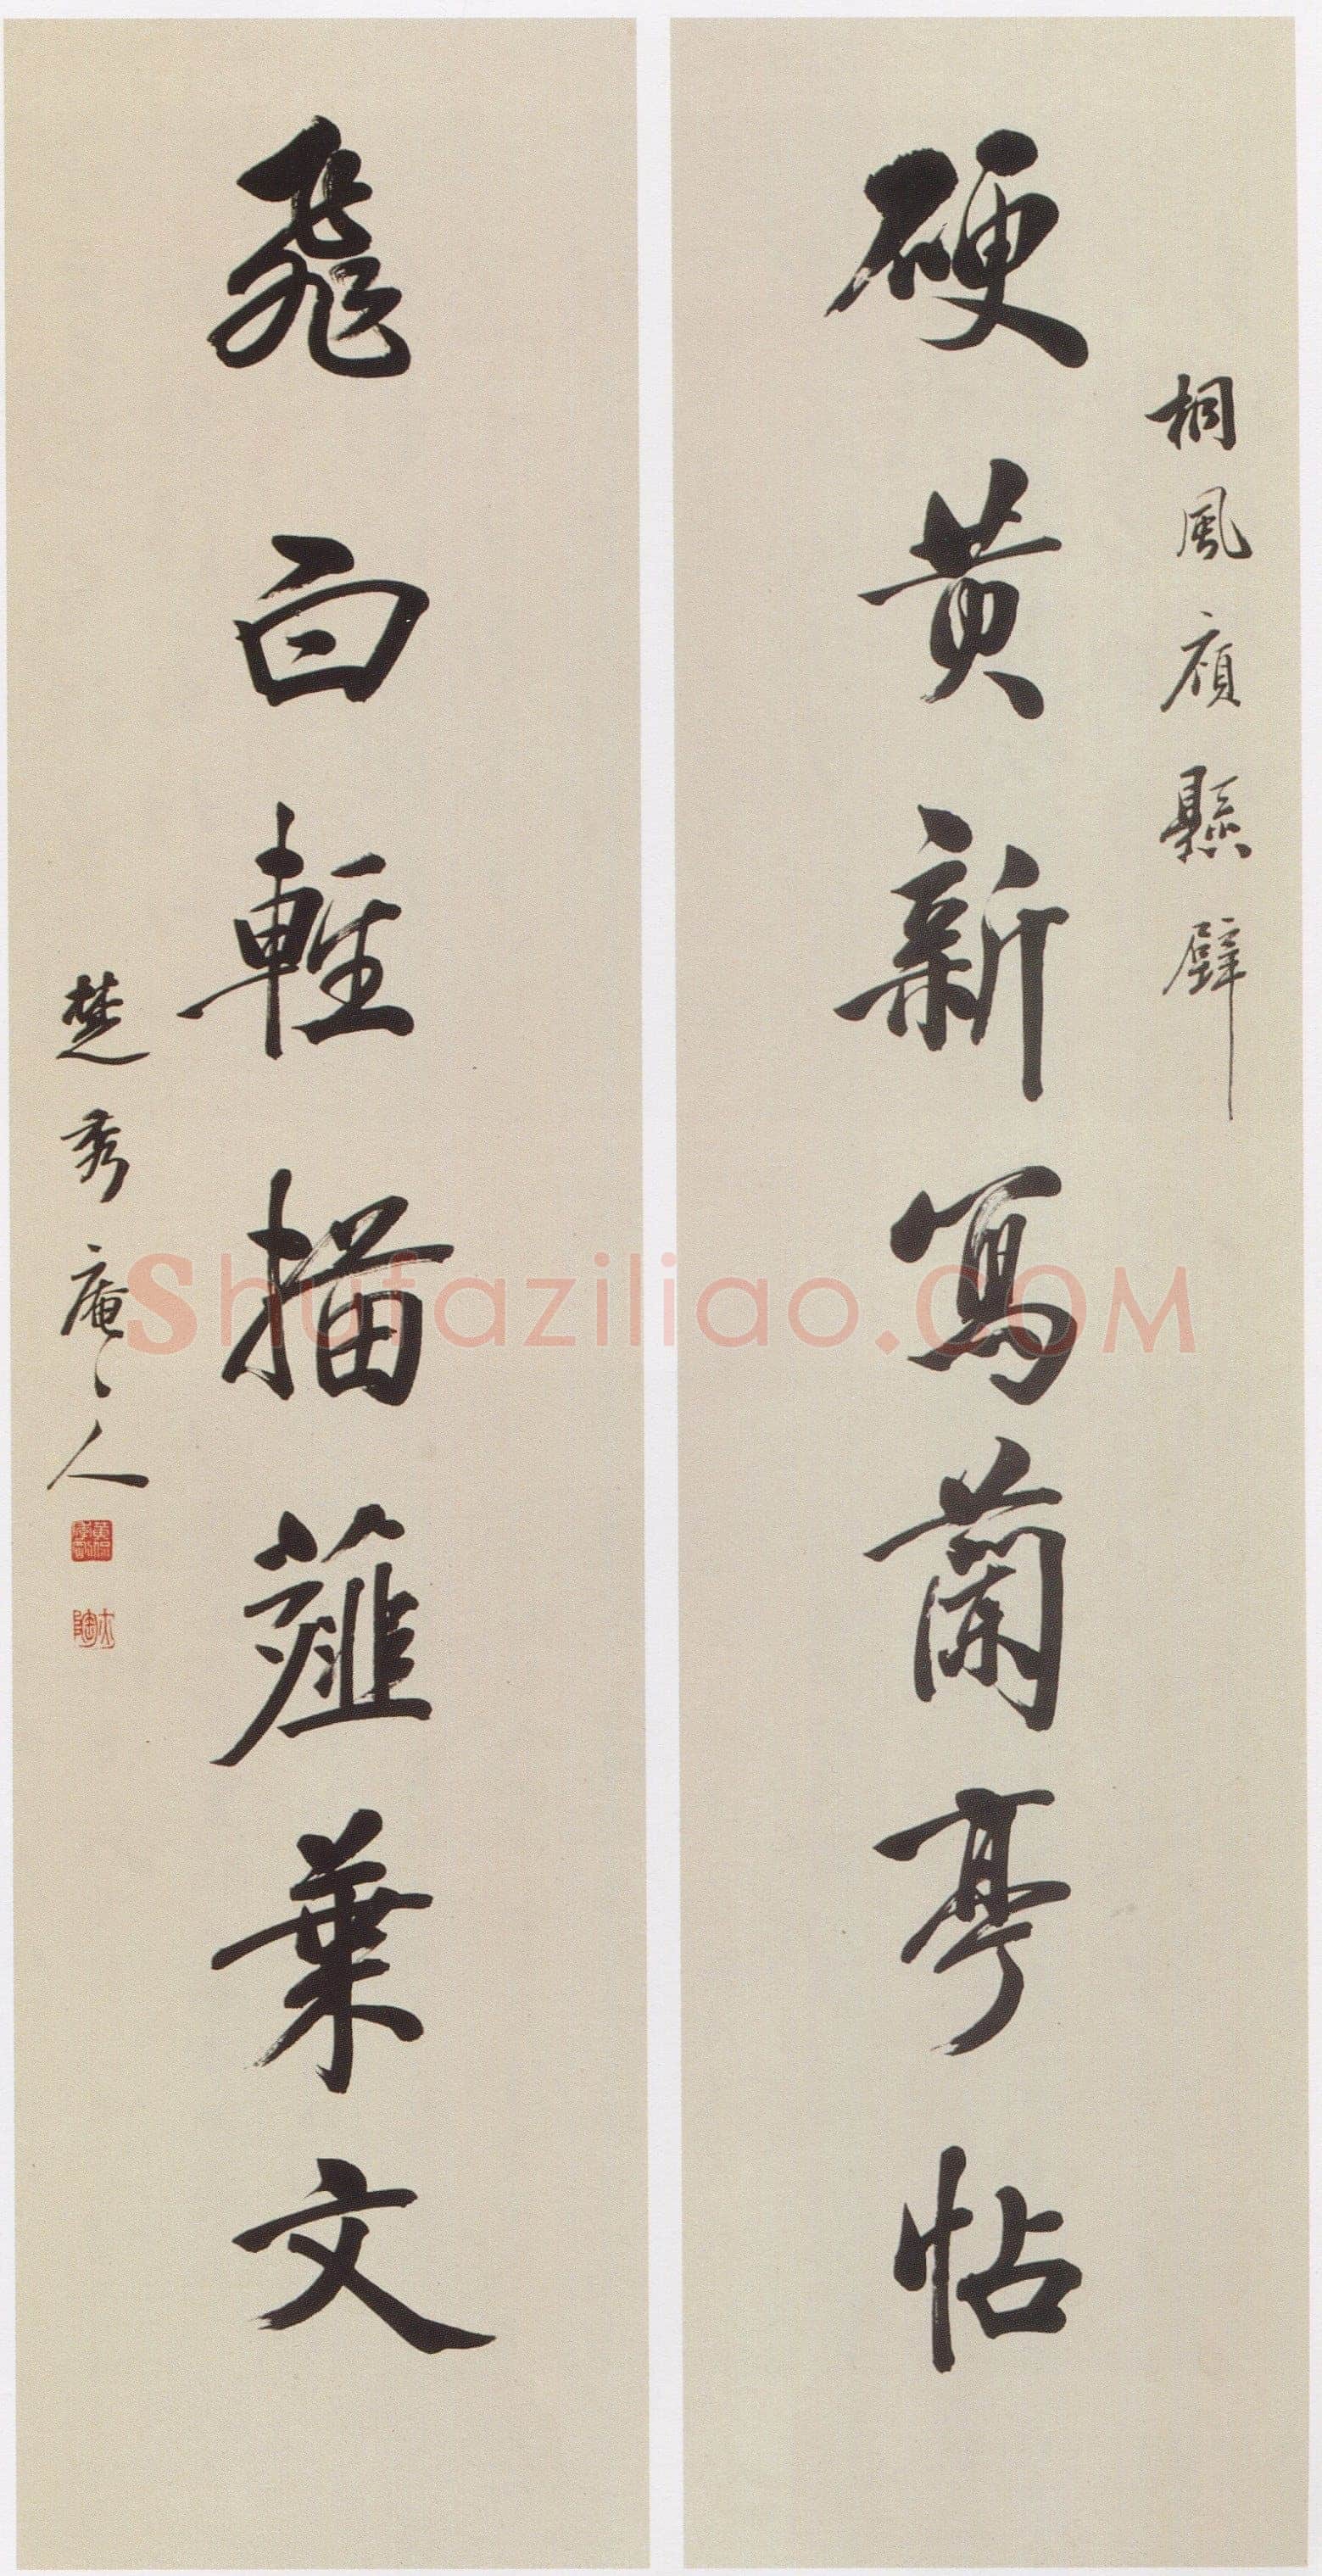 桐風廎懸壁
硬黃新寫蘭亭帖
飛白輕描薤葉文
楚秀庵人
Shufaziliao.COM